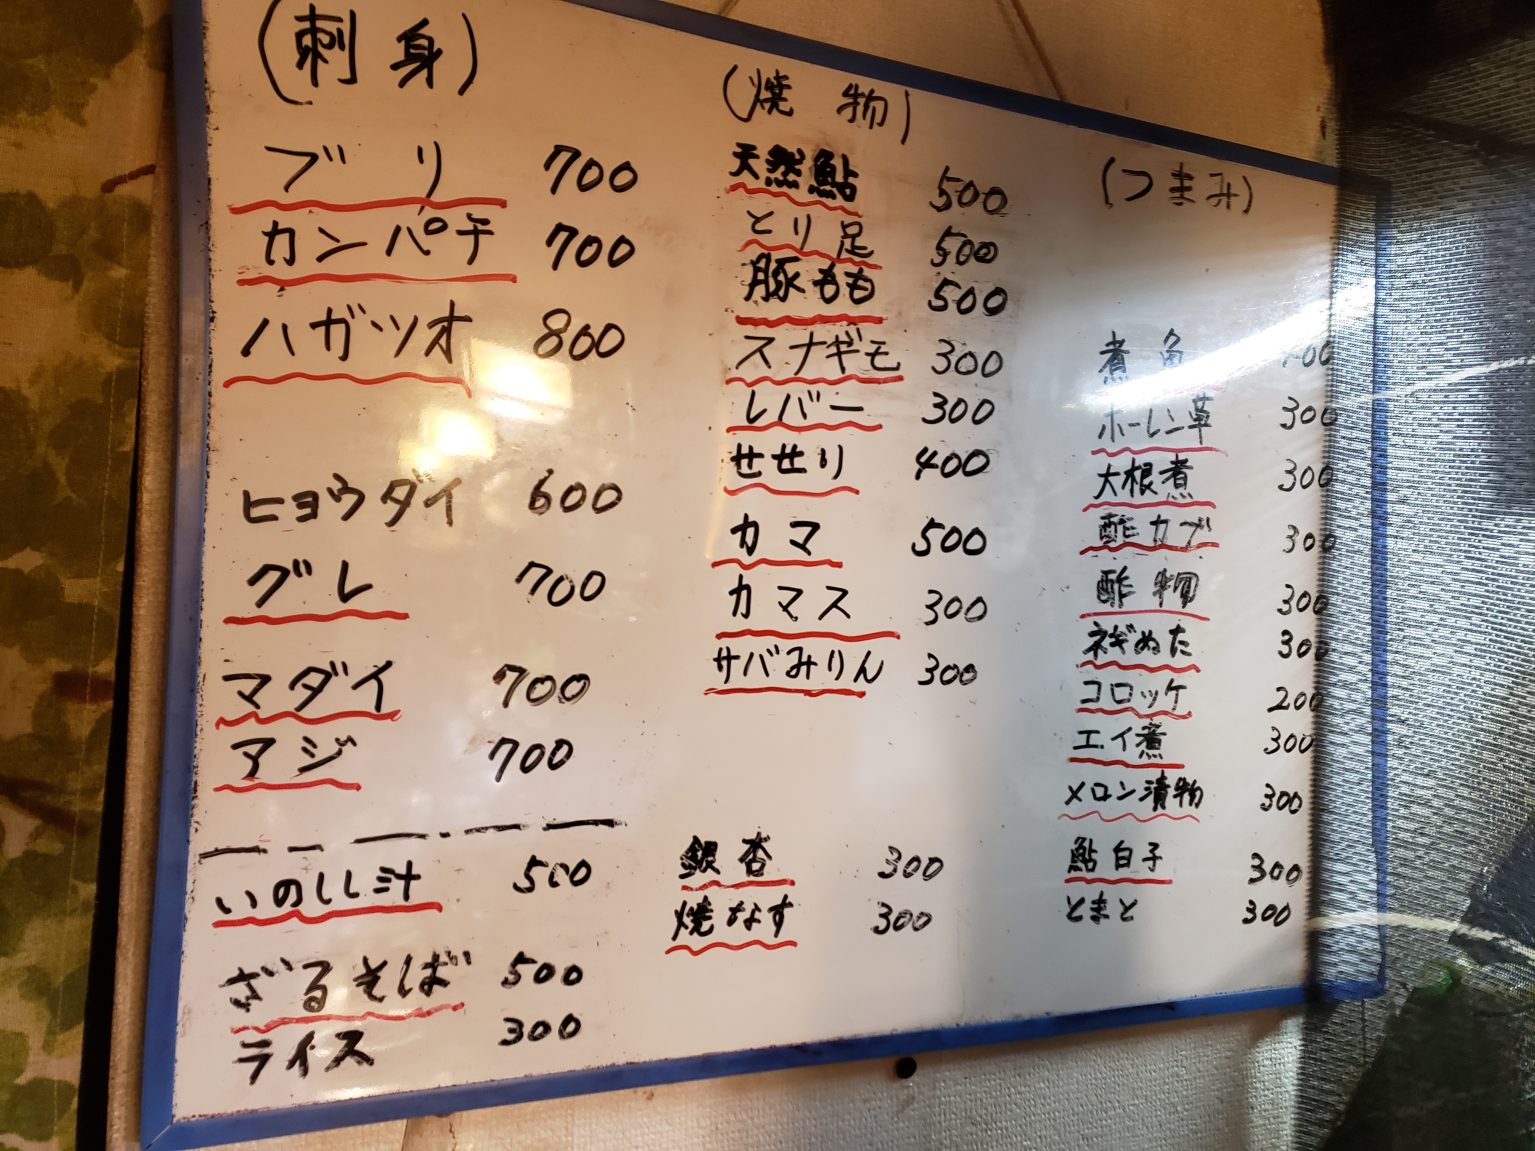 (刺身)
ブリ 700
カンパチ 700
ハガツオ 800
ヒョウダイ 600
グレ 700
マダイ 700
アジ 700
いのしし汁 500
ざるそば 500
ライス 300
(焼物)
天然鮎 500
とり足 500
豚もも 500
スナギモ 300
レバー 300
せせり 400
カマ 500
カマス 300
サバみりん 300
銀杏 300
焼なす 300
(つまみ)
煮魚
ホーレン草 300
大根煮 300
酢カブ 300
酢物 300
ネギぬた 300
コロッケ 200
エイ煮 300
メロン漬物 300
鮎白子 300
とまと 300